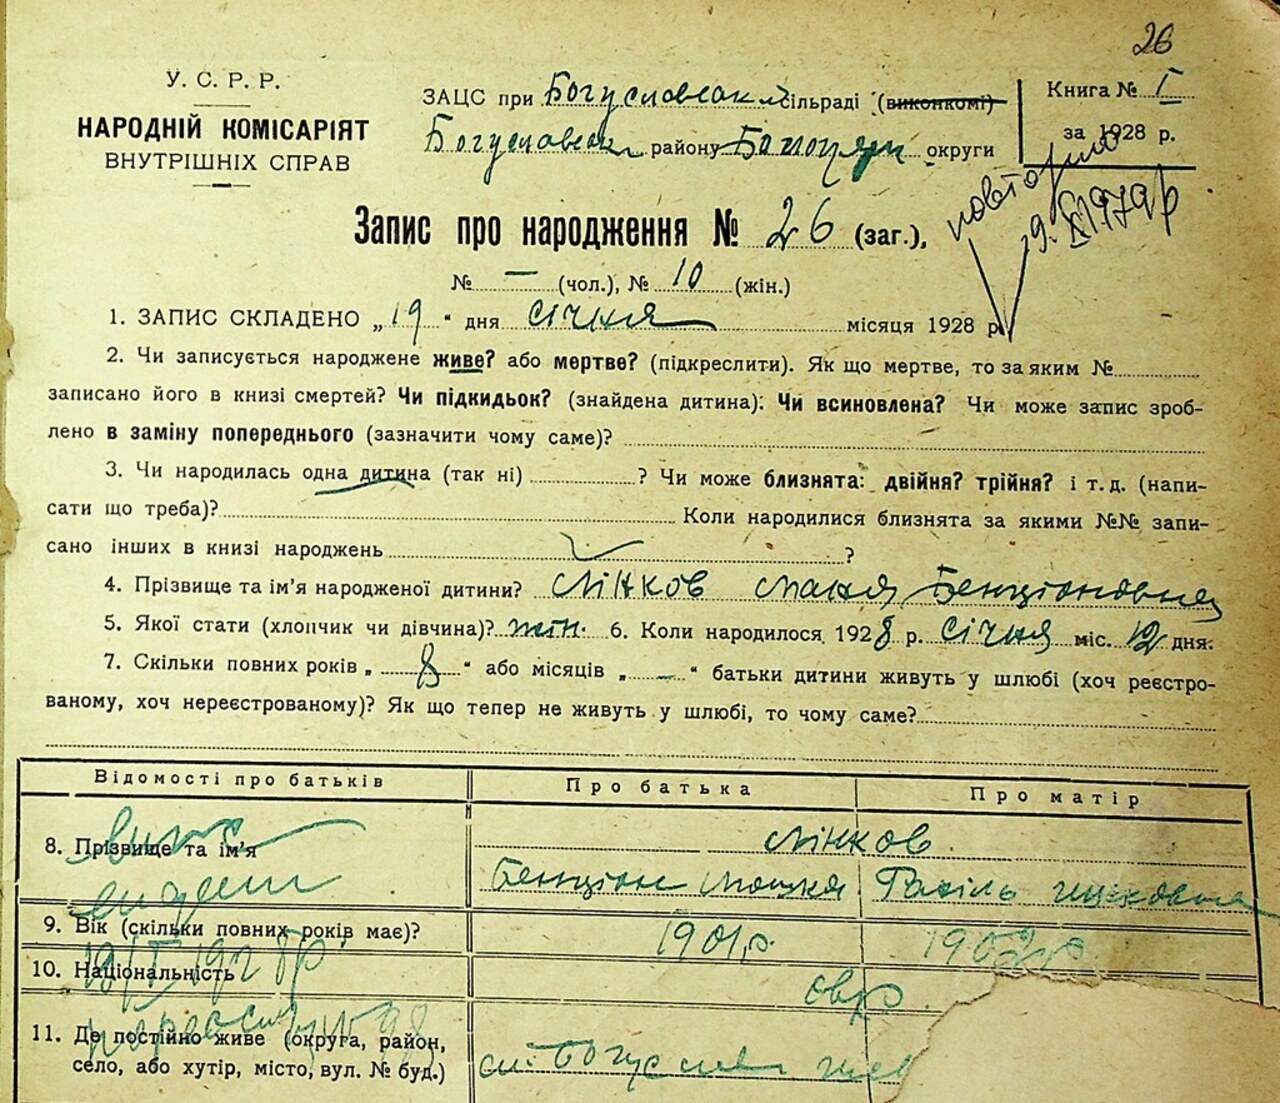 26
У. С. Р. Р.
НАРОДНІЙ КОМІСАРІЯТ
ВНУТРІШНІХ СПРАВ
ЗАЦС при Богуславськ сільраді (виконкомі)
Богуславськ району округи
Книга № I
за 1928 р.
повторно
9.XI 1979р
Запис про народження № 26 (заг.),
№ — (чол.), № 10 (жін.)
1. ЗАПИС СКЛАДЕНО „19“ дня січня місяця 1928 р.
2. Чи записується народжене живе? або мертве? (підкреслити). Як що мертве, то за яким №
записано його в книзі смертей? Чи підкидьок? (знайдена дитина): Чи всиновлена? Чи може запис зроб-
лено в заміну попереднього (зазначити чому саме)?
3. Чи народилась одна дитина (так ні) ? Чи може близнята: двійня? трійня? і т. д. (напи-
сати що треба)? Коли народилися близнята за якими №№ запи-
сано інших в книзі народжень ?
4. Прізвище та ім’я народженої дитини? Лінков Маня Бенціоновна
5. Якої стати (хлопчик чи дівчина)? жін. 6. Коли народилося 1928 р. січня міс. 12 дня.
7. Скільки повних років „8“ або місяців „—“ батьки дитини живуть у шлюбі (хоч реєстро-
ваному, хоч нереєстрованому)? Як що тепер не живуть у шлюбі, то чому саме?
Відомості про батьків Про батька Про матір
8. Прізвище та ім’я Лінков
Бенціон Мошка Рахіль Ицковна
9. Вік (скільки повних років має)? 1901р.
10. Національність євр.
19/I 1928р
11. Де постійно живе (округа, район,
село, або хутір, місто, вул. № буд.) м. Богуслав